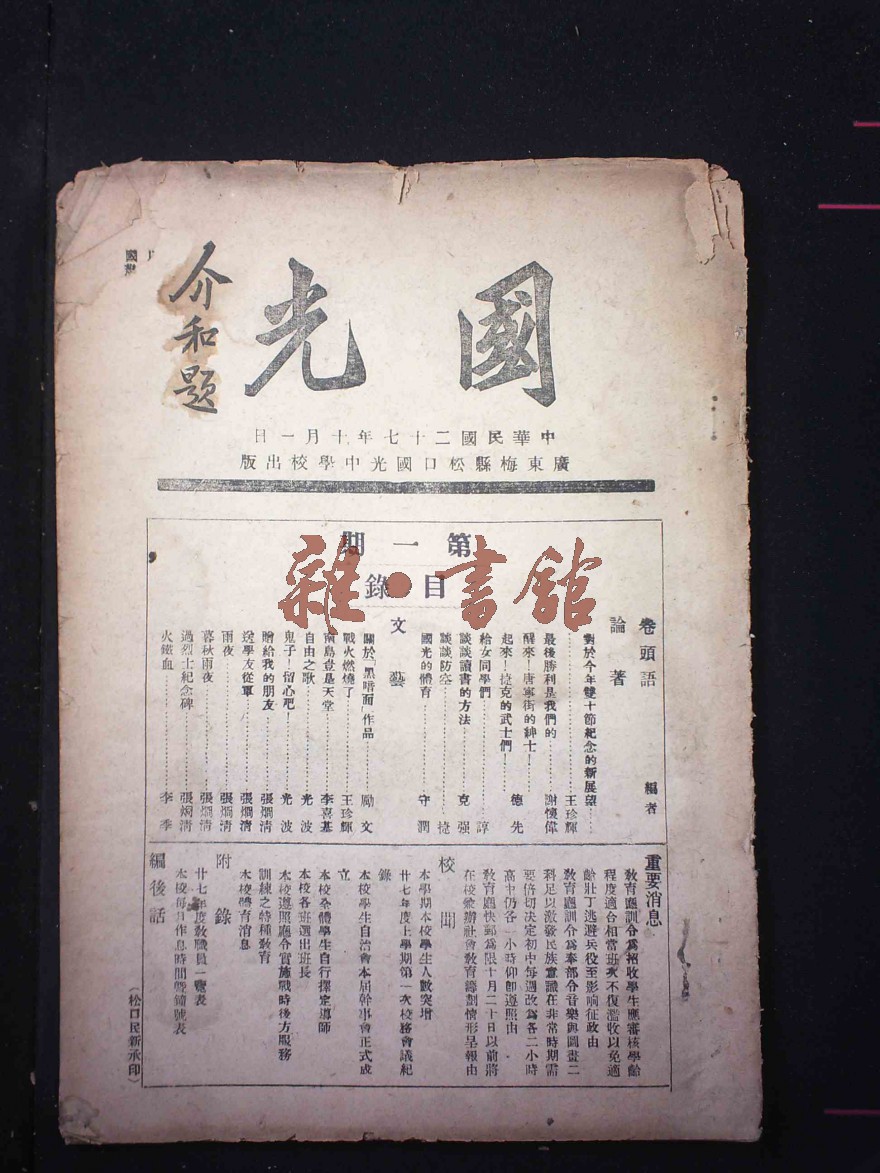 國光
介和題
中華民國二十七年十月一日
廣東梅縣松口國光中學校出版
第一期
目錄
雜·書館
卷頭語 編者
論著
對於今年雙十節紀念的新展望……
………王珍輝
最後勝利是我們的………謝懷偉
醒來！唐寧街的紳士！…
起來！捷克的武士們………德先
給女同學們………諄
談談讀書的方法………克强
談談防空………捷
國光的體育………守潤
文藝
關於「黑暗面」作品………勵文
戰火燃燒了………王珍輝
南島豈是天堂………李喜基
自由之歌………光波
鬼子！留心吧！………光波
贈給我的朋友………張烱清
送學友從軍………張烱清
雨夜………張烱清
暮秋雨夜………張烱清
過烈士紀念碑………張烱清
火鐵血………李季
重要消息
敎育廳訓令為招收學生應審核學齡
程度適合相當班次不復濫收以免適
齡壯丁逃避兵役至影响征政由
敎育廳訓令為奉部令音樂與圖畫二
科足以激發民族意識在非常時期需
要倍切決定初中每週改為各二小時
高中仍各一小時仰即遵照由
敎育廳快郵為限十月二十日以前將
在校兼辦社會敎育籌劃情形呈報由
校聞
本學期本校學生人數突增
廿七年度上學期第一次校務會議紀
錄
本校學生自治會本屆幹事會正式成
立
本校全體學生自行擇定導師
本校各班選出班長
本校遵照廳令實施戰時後方服務
訓練之特種敎育
本校體育消息
附錄
廿七年度敎職員一覽表
本校每日作息時間暨鐘號表
編後話
（松口民新承印）